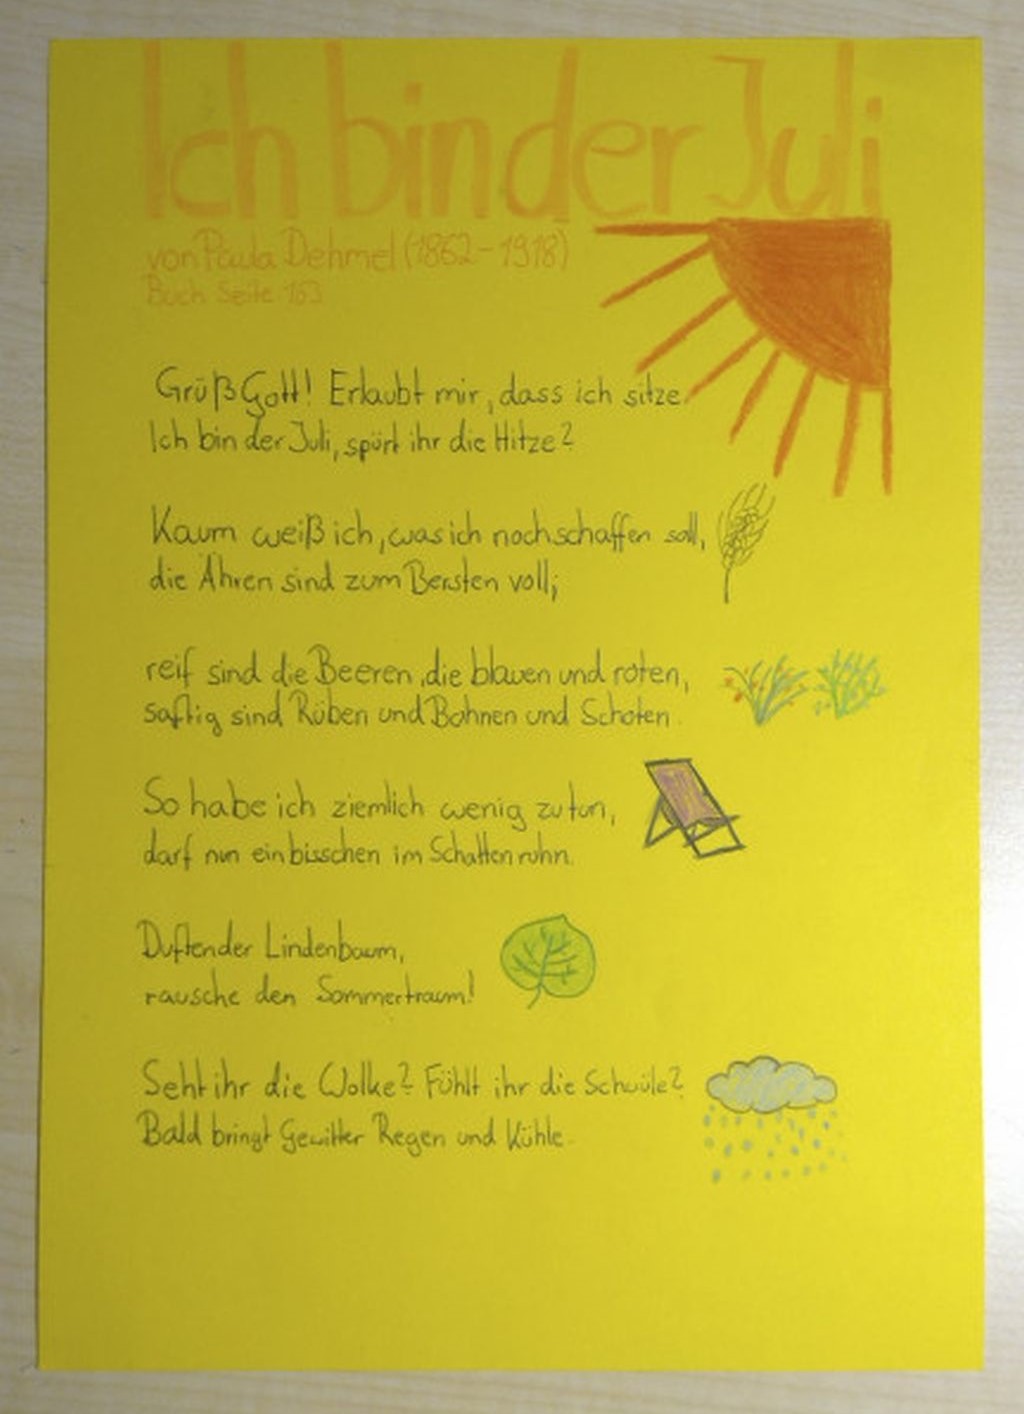 Ich bin der Juli
von Paula Dehmel (1862-1918)
Buch Seite 163
Grüß Gott! Erlaubt mir, dass ich sitze.
Ich bin der Juli, spürt ihr die Hitze?
Kaum weiß ich, was ich noch schaffen soll,
die Ähren sind zum Bersten voll;
reif sind die Beeren, die blauen und roten,
saftig sind Rüben und Bohnen und Schoten.
So habe ich ziemlich wenig zu tun,
darf nun ein bisschen im Schatten ruhn.
Duftender Lindenbaum,
rausche den Sommertraum!
Seht ihr die Wolke? Fühlt ihr die Schwüle?
Bald bringt Gewitter Regen und Kühle.